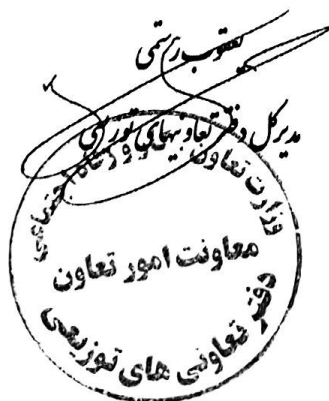 یعقوب رستمی
مدیرکل دفتر تعاونیهای توزیعی
وزارت تعاون کار و رفاه اجتماعی
معاونت امور تعاون
دفتر تعاونی های توزیعی